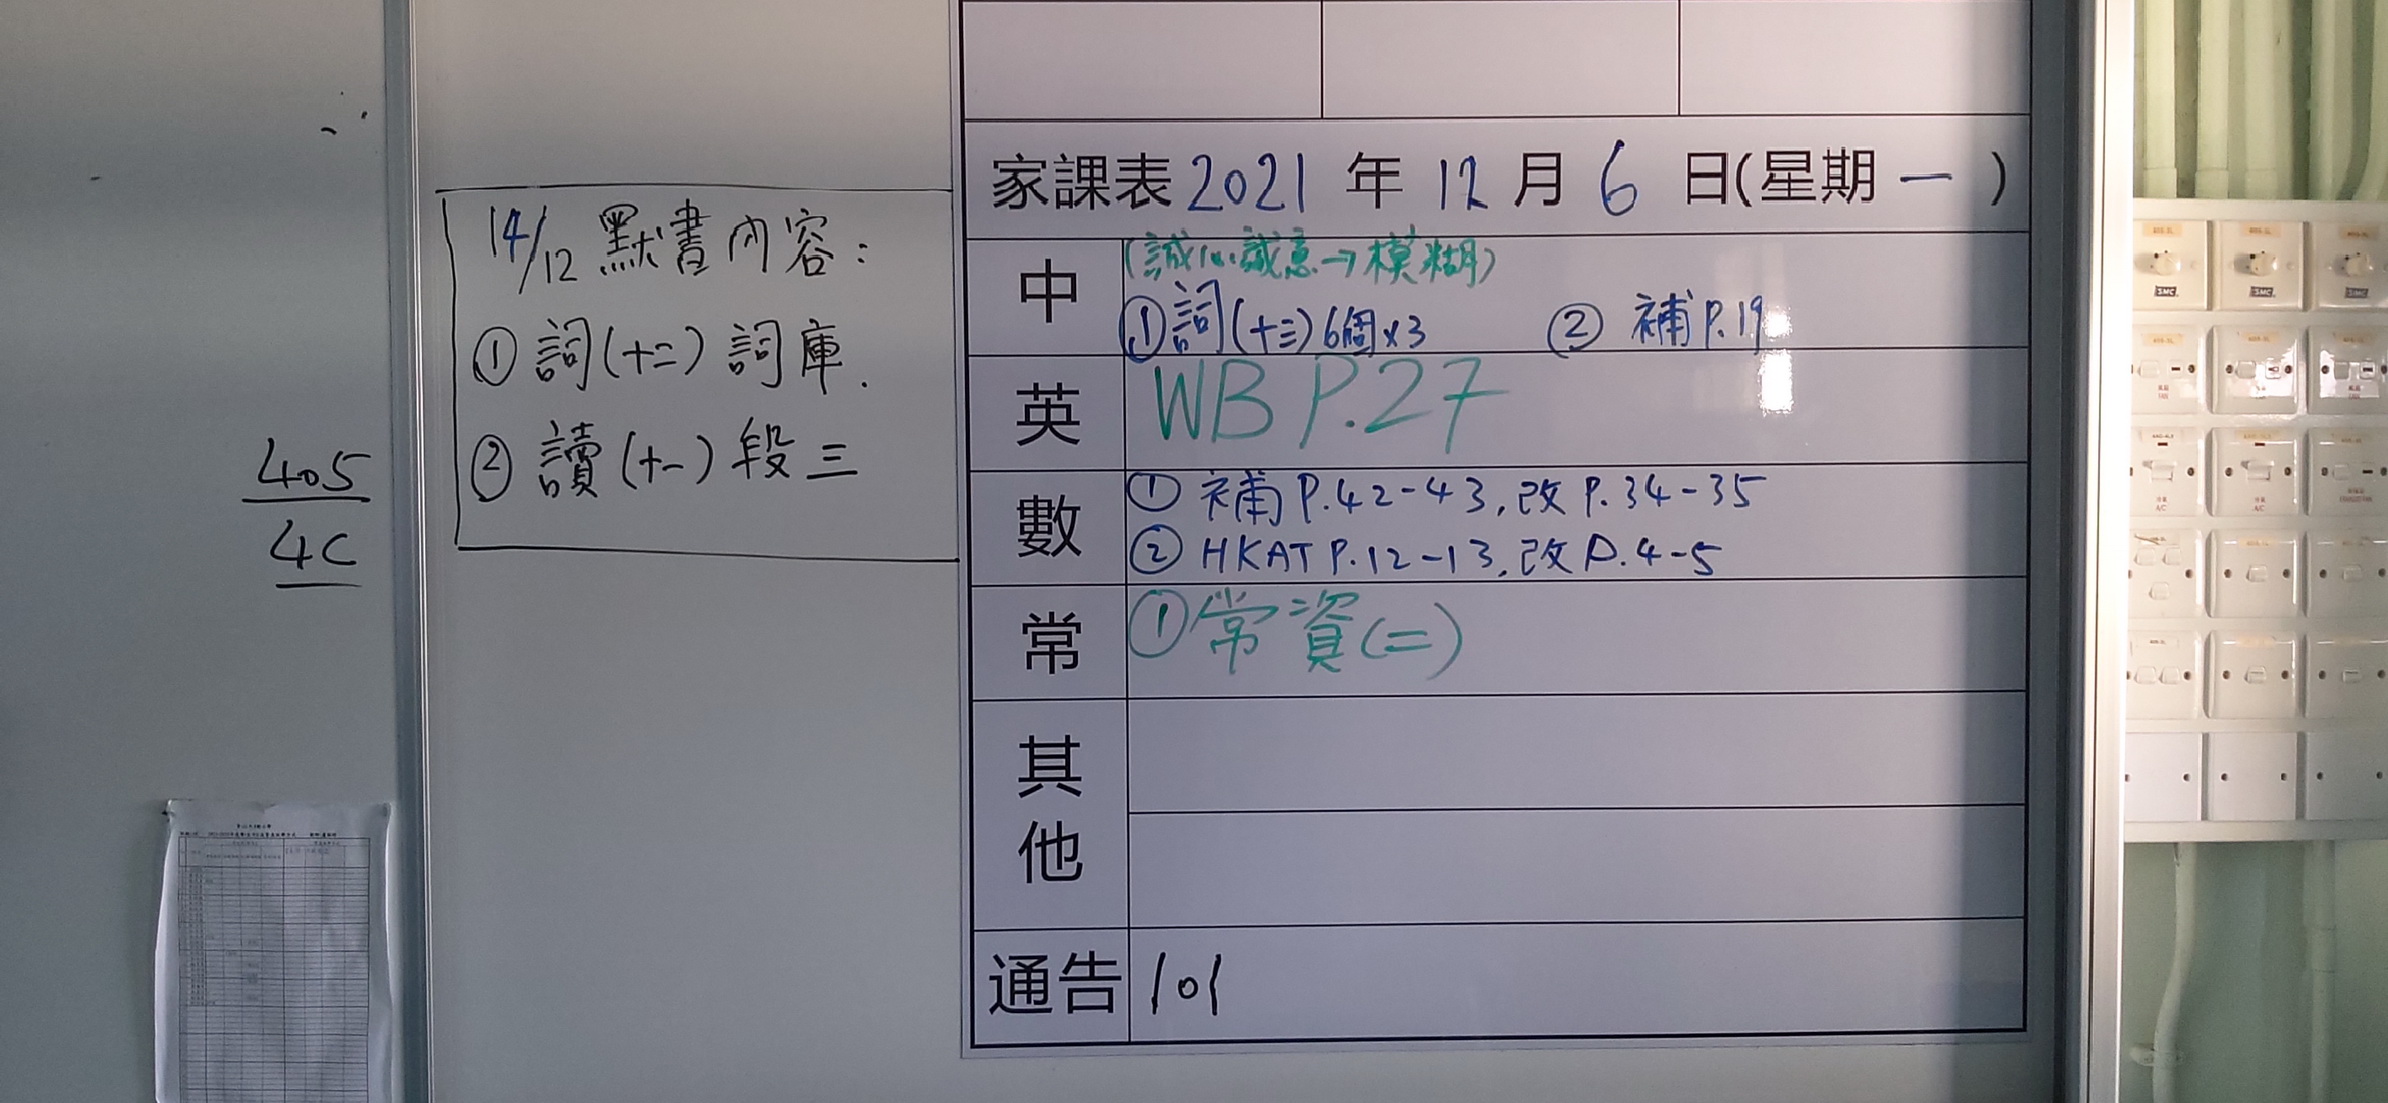 14/12 默書內容：
① 詞(十二) 詞庫.
② 讀(十一) 段三
405
4C
家課表 2021 年 12 月 6 日(星期 一 )
中
(誠心誠意→模糊)
① 詞(十三) 6個×3 ② 補 P.19
英
WB P.27
數
① 補 P.42-43, 改 P.34-35
② HKAT P.12-13, 改 P.4-5
常
① 常資(二)
其他
通告
101
SMC SMC SMC